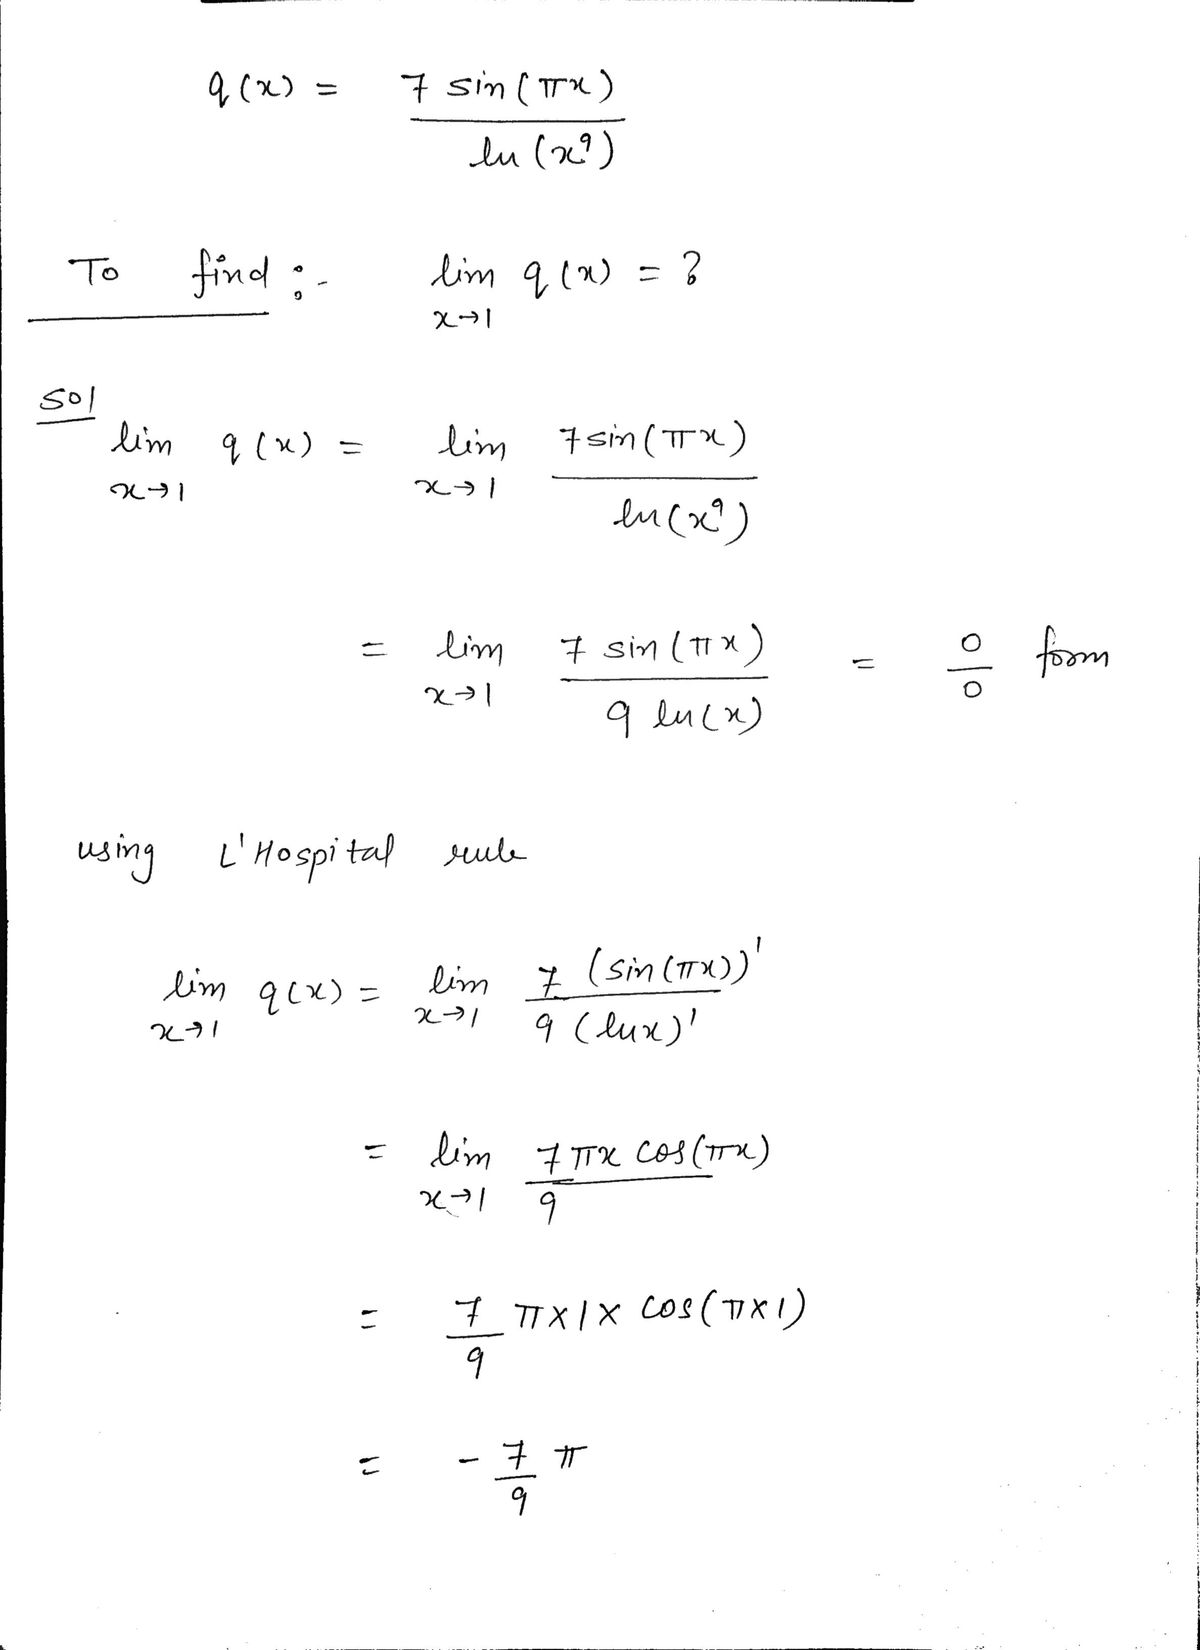 q(x) = 7 sin(πx) / ln(x⁹)
To find :- lim x→1 q(x) = ?
Sol
lim x→1 q(x) = lim x→1 7 sin(πx) / ln(x⁹)
= lim x→1 7 sin(πx) / 9 ln(x) = 0/0 form
using L'Hospital rule
lim x→1 q(x) = lim x→1 7 (sin(πx))' / 9 (lnx)'
= lim x→1 7πx cos(πx) / 9
= 7/9 π×1× cos(π×1)
= - 7/9 π